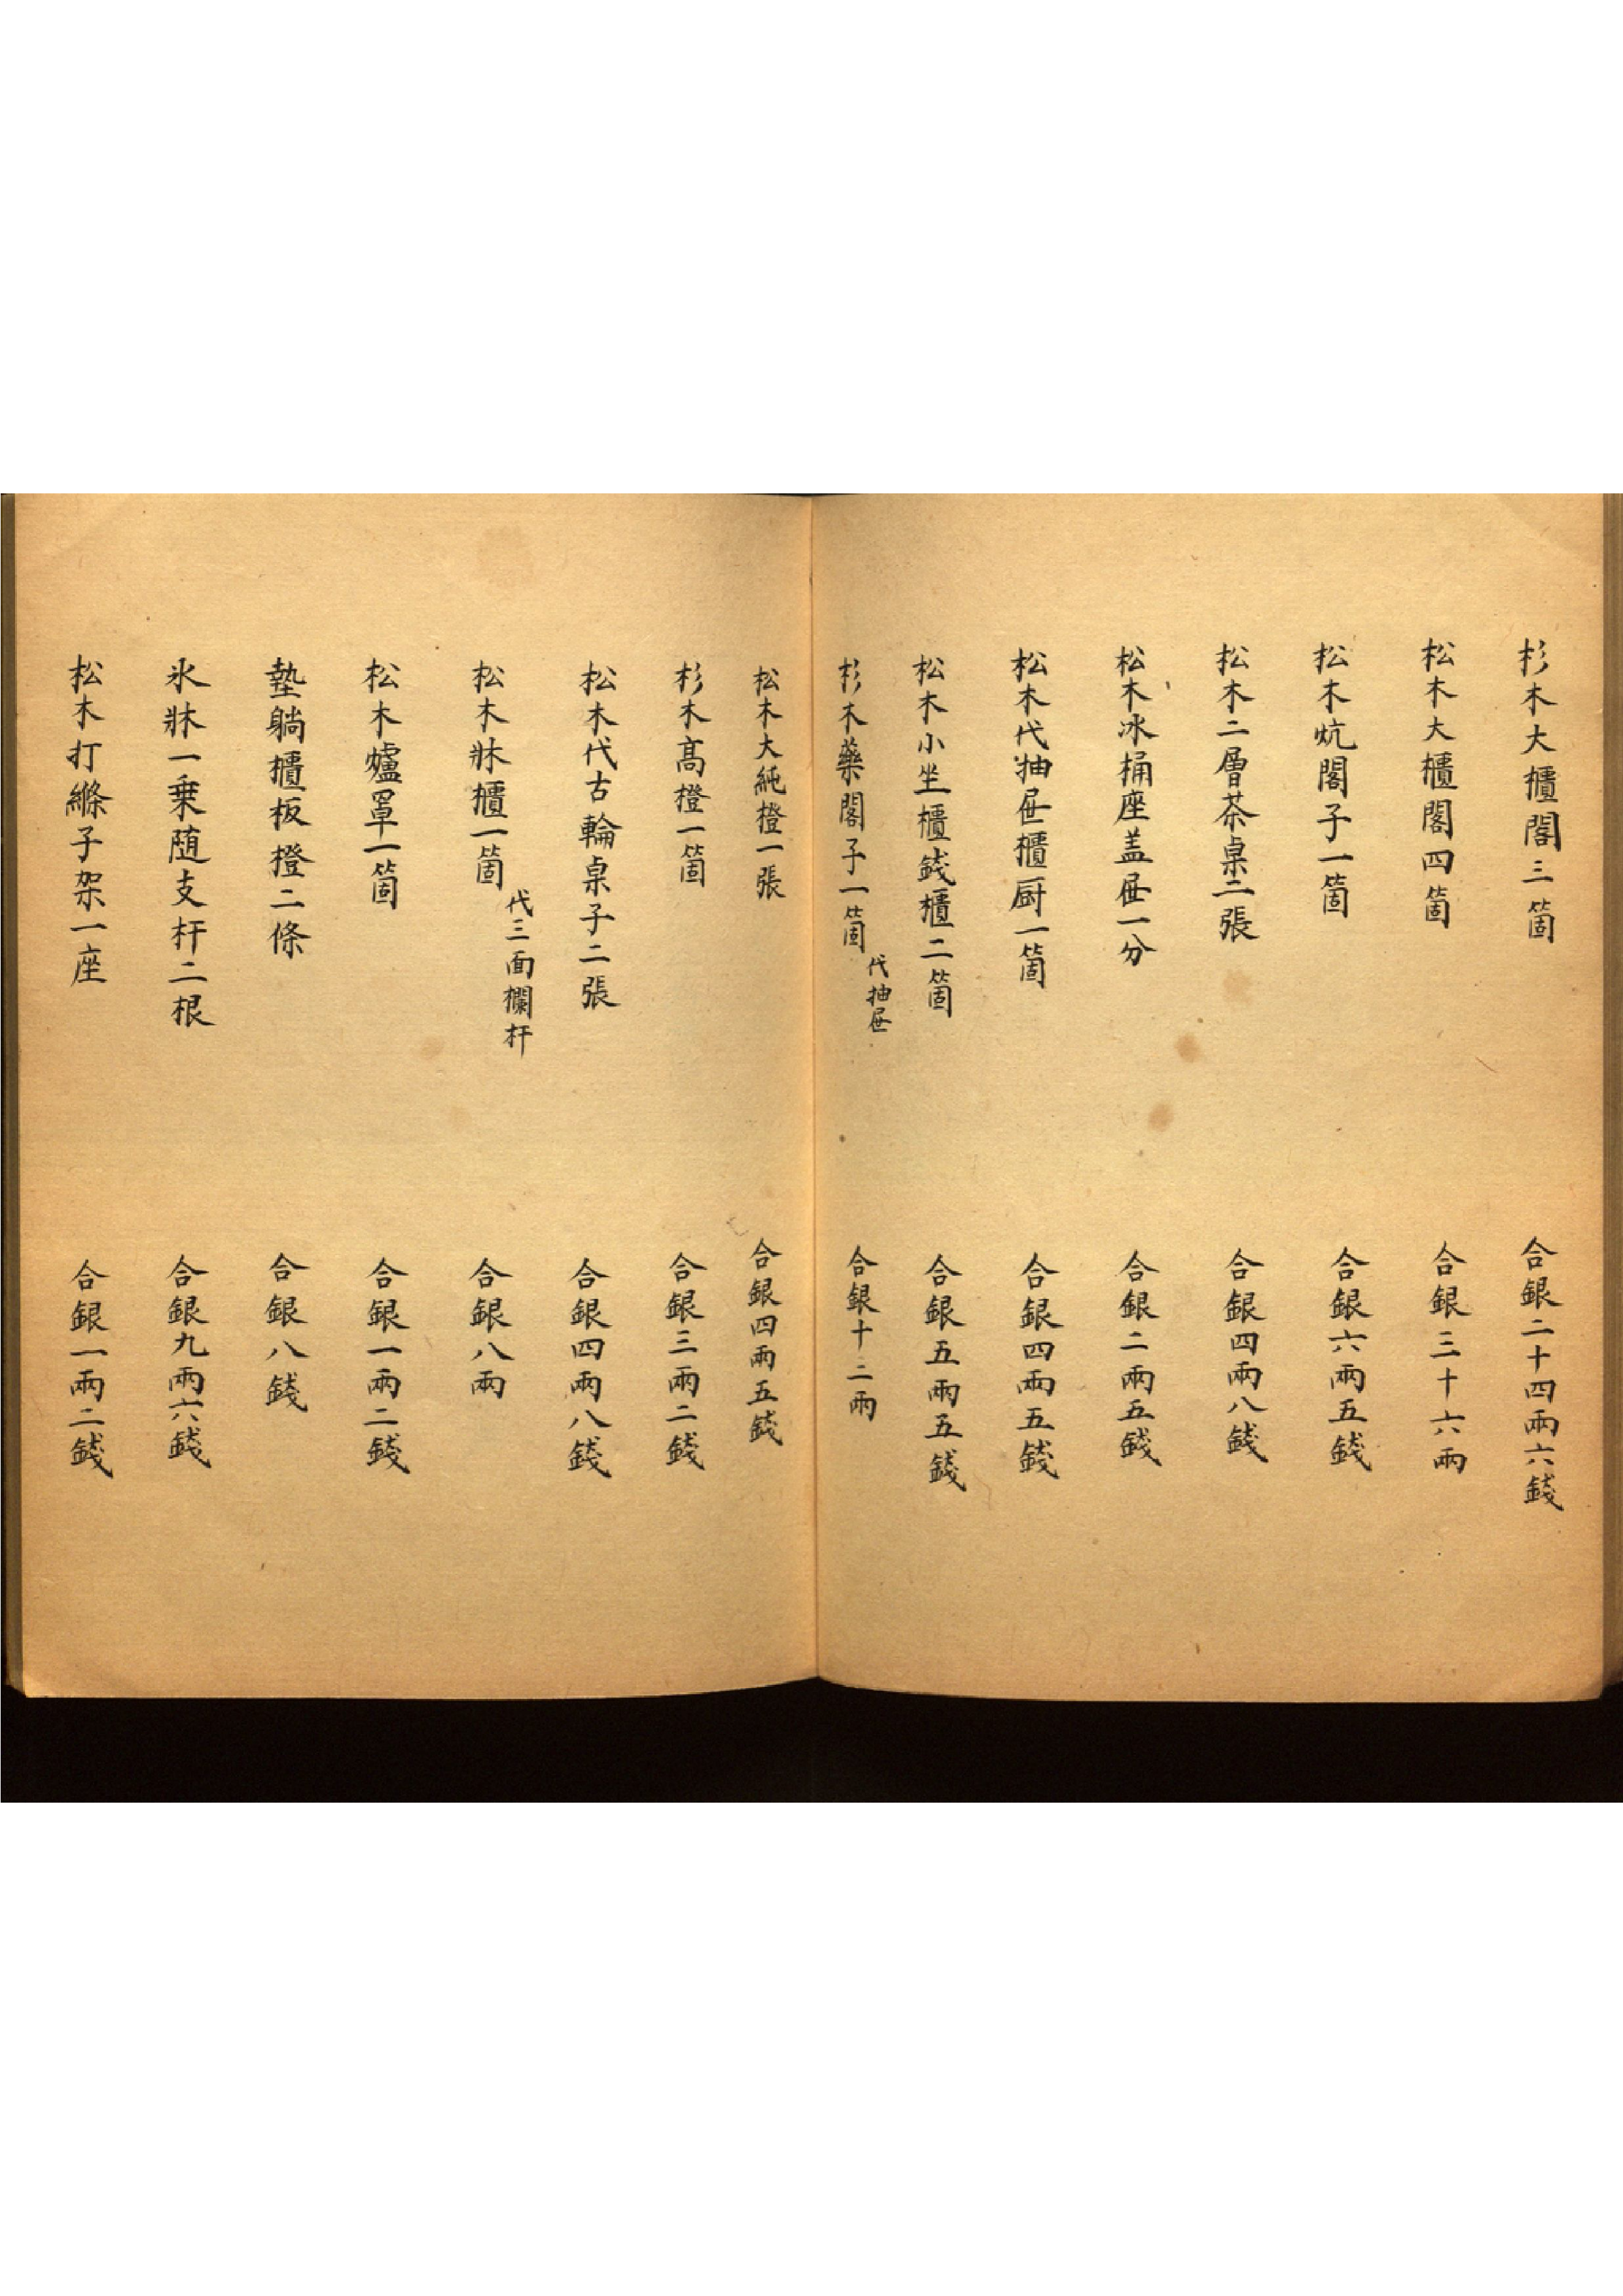 杉木大櫃閣三箇
合銀二十四兩六錢
松木大櫃閣四箇
合銀三十六兩
松木炕閣子一箇
合銀六兩五錢
松木二層茶桌二張
合銀四兩八錢
松木冰桶座盖屉一分
合銀二兩五錢
松木代抽屉櫃厨一箇
合銀四兩五錢
松木小坐櫃錢櫃二箇
合銀五兩五錢
杉木藥閣子一箇
代抽屉
合銀十二兩
松木大純橙一張
合銀四兩五錢
杉木高橙一箇
合銀三兩二錢
松木代古輪桌子二張
合銀四兩八錢
松木牀櫃一箇
代三面欄杆
合銀八兩
松木爐罩一箇
合銀一兩二錢
墊躺櫃板橙二條
合銀八錢
氷牀一乗随支杆二根
合銀九兩六錢
松木打縧子架一座
合銀一兩二錢